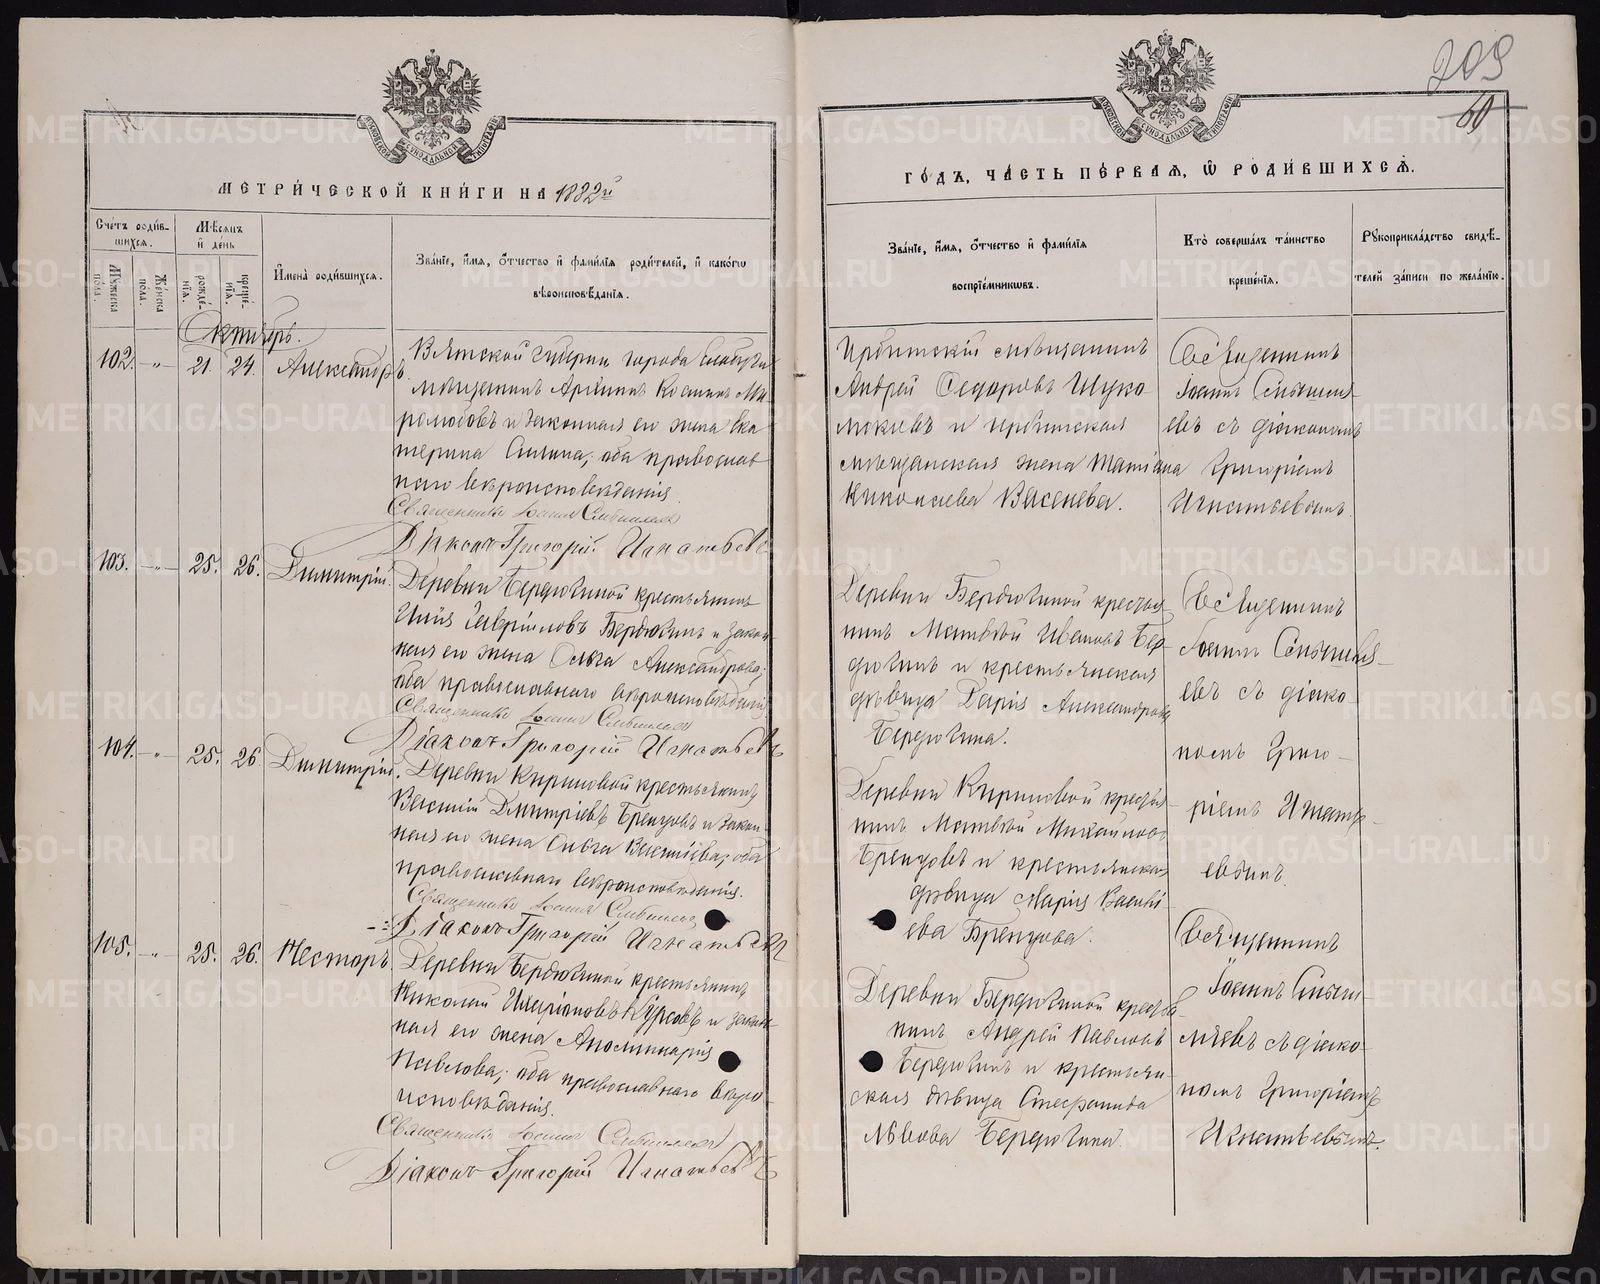 МЕТРИ́ЧЕСКОЙ КНИ́ГИ НА 1882й
Сче́тъ роди́в-
шихся.
Му́жеска по́ла.
Же́нска по́ла.
Мѣ́сяцъ и҆ день
рожде́-нїѧ.
креще́-нїѧ.
И҆мена̀ роди́вшихся.
Зва́нїе, и҆́мѧ, о҆́тчество и҆ фами́лїѧ роди́телей, и҆ како́гѡ
вѣроисповѣ́данїѧ.
Октябрь.
102. -"- 21. 24. Александръ.
Вятской губерніи города
мѣщанинъ Косминъ Ми-
ролюбовъ и законная его жена Ека-
терина; оба православ-
наго вѣроисповѣданія.
Священникъ Іоаннъ
Діаконъ Григорій Игнатьевъ
103. -"- 25. 26. Димитрій.
Деревни Бердюгиной крестьянинъ
Илія Гавріиловъ Бердюгинъ и закон-
ная его жена Ольга Александрова;
оба православнаго вѣроисповѣданія
Священникъ Іоаннъ
Діаконъ Григорій Игнатьевъ
104. -"- 25. 26. Димитрій.
Деревни Кириловой крестьянинъ
Василій Димитріевъ Бренцовъ и закон-
ная его жена Ольга Василіева; оба
православнаго вѣроисповѣданія.
Священникъ Іоаннъ
Діаконъ Григорій Игнатьевъ
105. -"- 25. 26. Несторъ.
Деревни Бердюгиной крестьянинъ
Николай Иларіоновъ Курсовъ и закон-
ная его жена Аполлинарія
Павлова; оба православнаго вѣро-
исповѣданія.
Священникъ Іоаннъ
Діаконъ Григорій Игнатьевъ
209
60
ГО́ДЪ, ЧА́СТЬ ПЕ́РВАѦ, Ѡ҆ РОДИ́ВШИХСѦ.
Зва́нїе, и҆́мѧ, о҆́тчество и҆ фами́лїѧ
воспрїе́мникѡвъ.
Кто̀ соверша́лъ та́инство
креще́нїѧ.
Рꙋкоприкла́дство свидѣ́-
телей за́писи по жела́нїю.
Ирбитскій мѣщанинъ
Андрей Федоровъ Шуко-
молкинъ и ирбитская
мѣщанская жена Татіана
Николаева Васенева.
Священникъ
Іоаннъ
евъ съ діакономъ
Григоріемъ
Игнатьевымъ.
Деревни Бердюгиной крестья-
нинъ Матвѣй Ивановъ Бер-
дюгинъ и крестьянская
дѣвица Дарія Александрова
Бердюгина.
Священникъ
Іоаннъ
евъ съ діако-
номъ Григо-
ріемъ Игнать-
евымъ.
Деревни Кириловой крестья-
нинъ Матвѣй Михайловъ
Бренцовъ и крестьянская
дѣвица Марія Василі-
ева Бренцова.
Деревни Бердюгиной крестья-
нинъ Андрей Павловъ
Бердюгинъ и крестьян-
ская дѣвица Стефанида
Львова Бердюгина.
Священникъ
Іоаннъ
съ діако-
номъ Григоріемъ
Игнатьевымъ.
METRIKI.GASO-URAL.RU